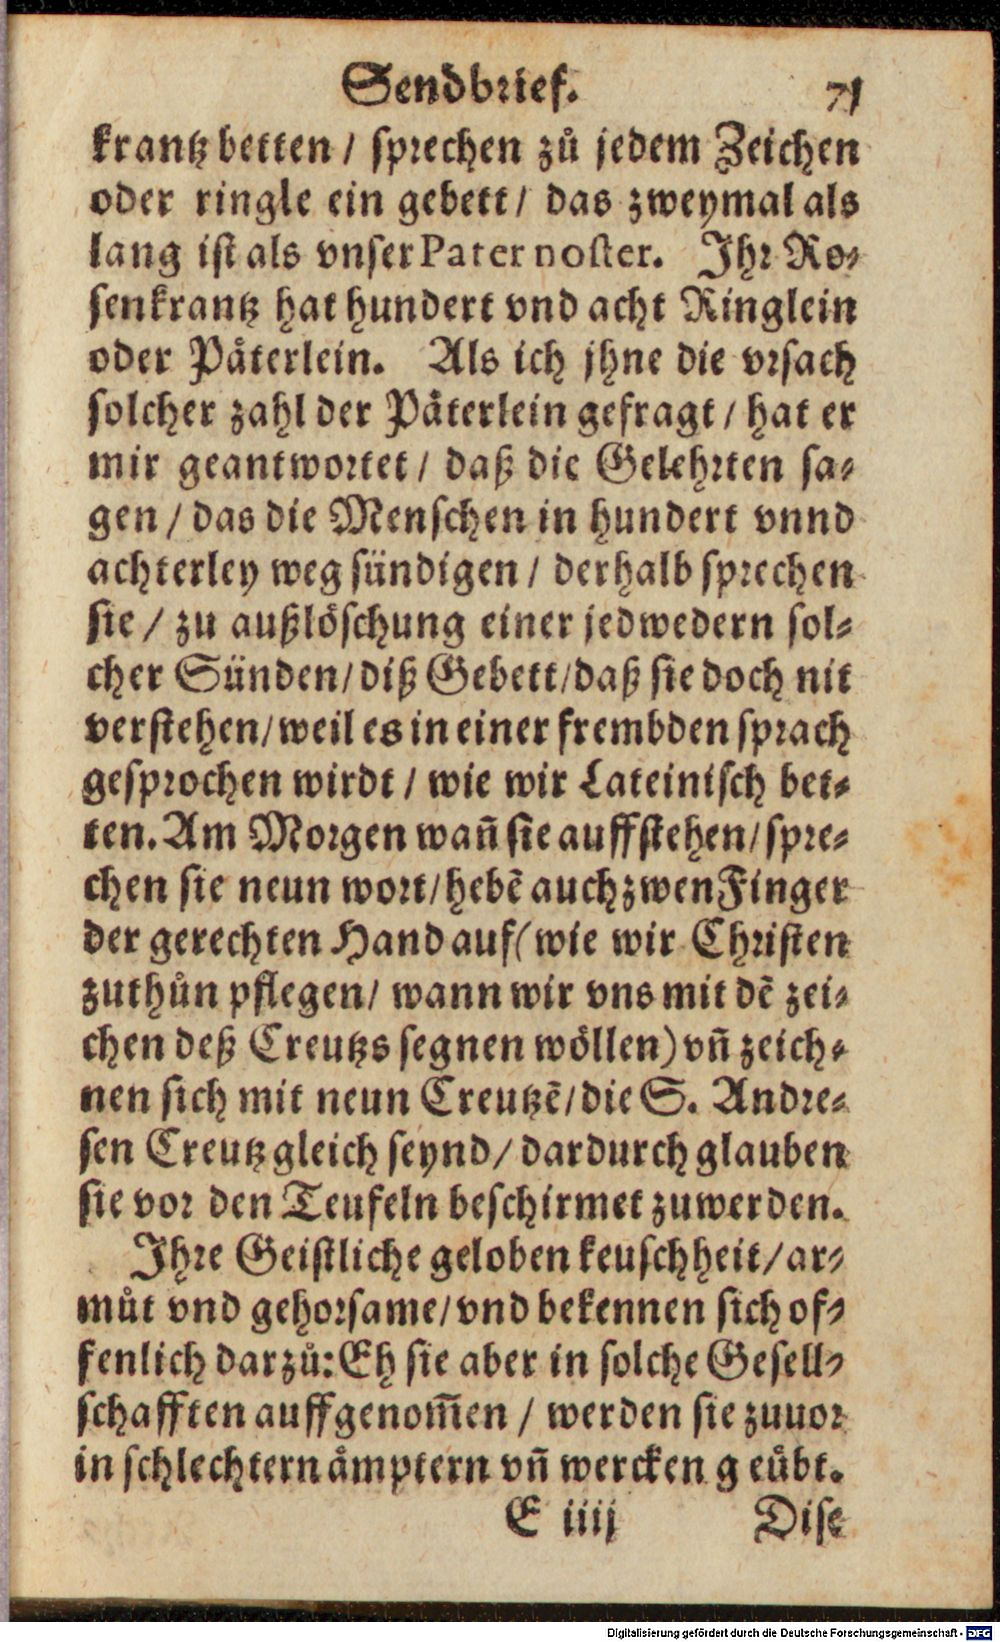 Sendbrief. 71
krantz betten / sprechen zů jedem Zeichen
oder ringle ein gebett / das zweymal als
lang ist als vnser Pater noster. Ihr Ro-
senkrantz hat hundert vnd acht Ringlein
oder Päterlein. Als ich jhne die vrsach
solcher zahl der Päterlein gefragt / hat er
mir geantwortet / daß die Gelehrten sa-
gen / das die Menschen in hundert vnnd
achterley weg sündigen / derhalb sprechen
sie / zu außlöschung einer jedwedern sol-
cher Sünden / diß Gebett / daß sie doch nit
verstehen / weil es in einer frembden sprach
gesprochen wirdt / wie wir Lateinisch bet-
ten. Am Morgen wañ sie auffstehen / spre-
chen sie neun wort / hebẽ auch zwen Finger
der gerechten Hand auf (wie wir Christen
zuthůn pflegen / wann wir vns mit dẽ zei-
chen deß Creutzs segnen wöllen) vñ zeich-
nen sich mit neun Creutzẽ / die S. Andre-
sen Creutz gleich seynd / dardurch glauben
sie vor den Teufeln beschirmet zuwerden.
Ihre Geistliche geloben keuschheit / ar-
můt vnd gehorsame / vnd bekennen sich of-
fenlich darzů: Eh sie aber in solche Gesell-
schafften auffgenom̃en / werden sie zuuor
in schlechtern ämptern vñ wercken geübt.
E iiij Dise
Digitalisierung gefördert durch die Deutsche Forschungsgemeinschaft - DFG